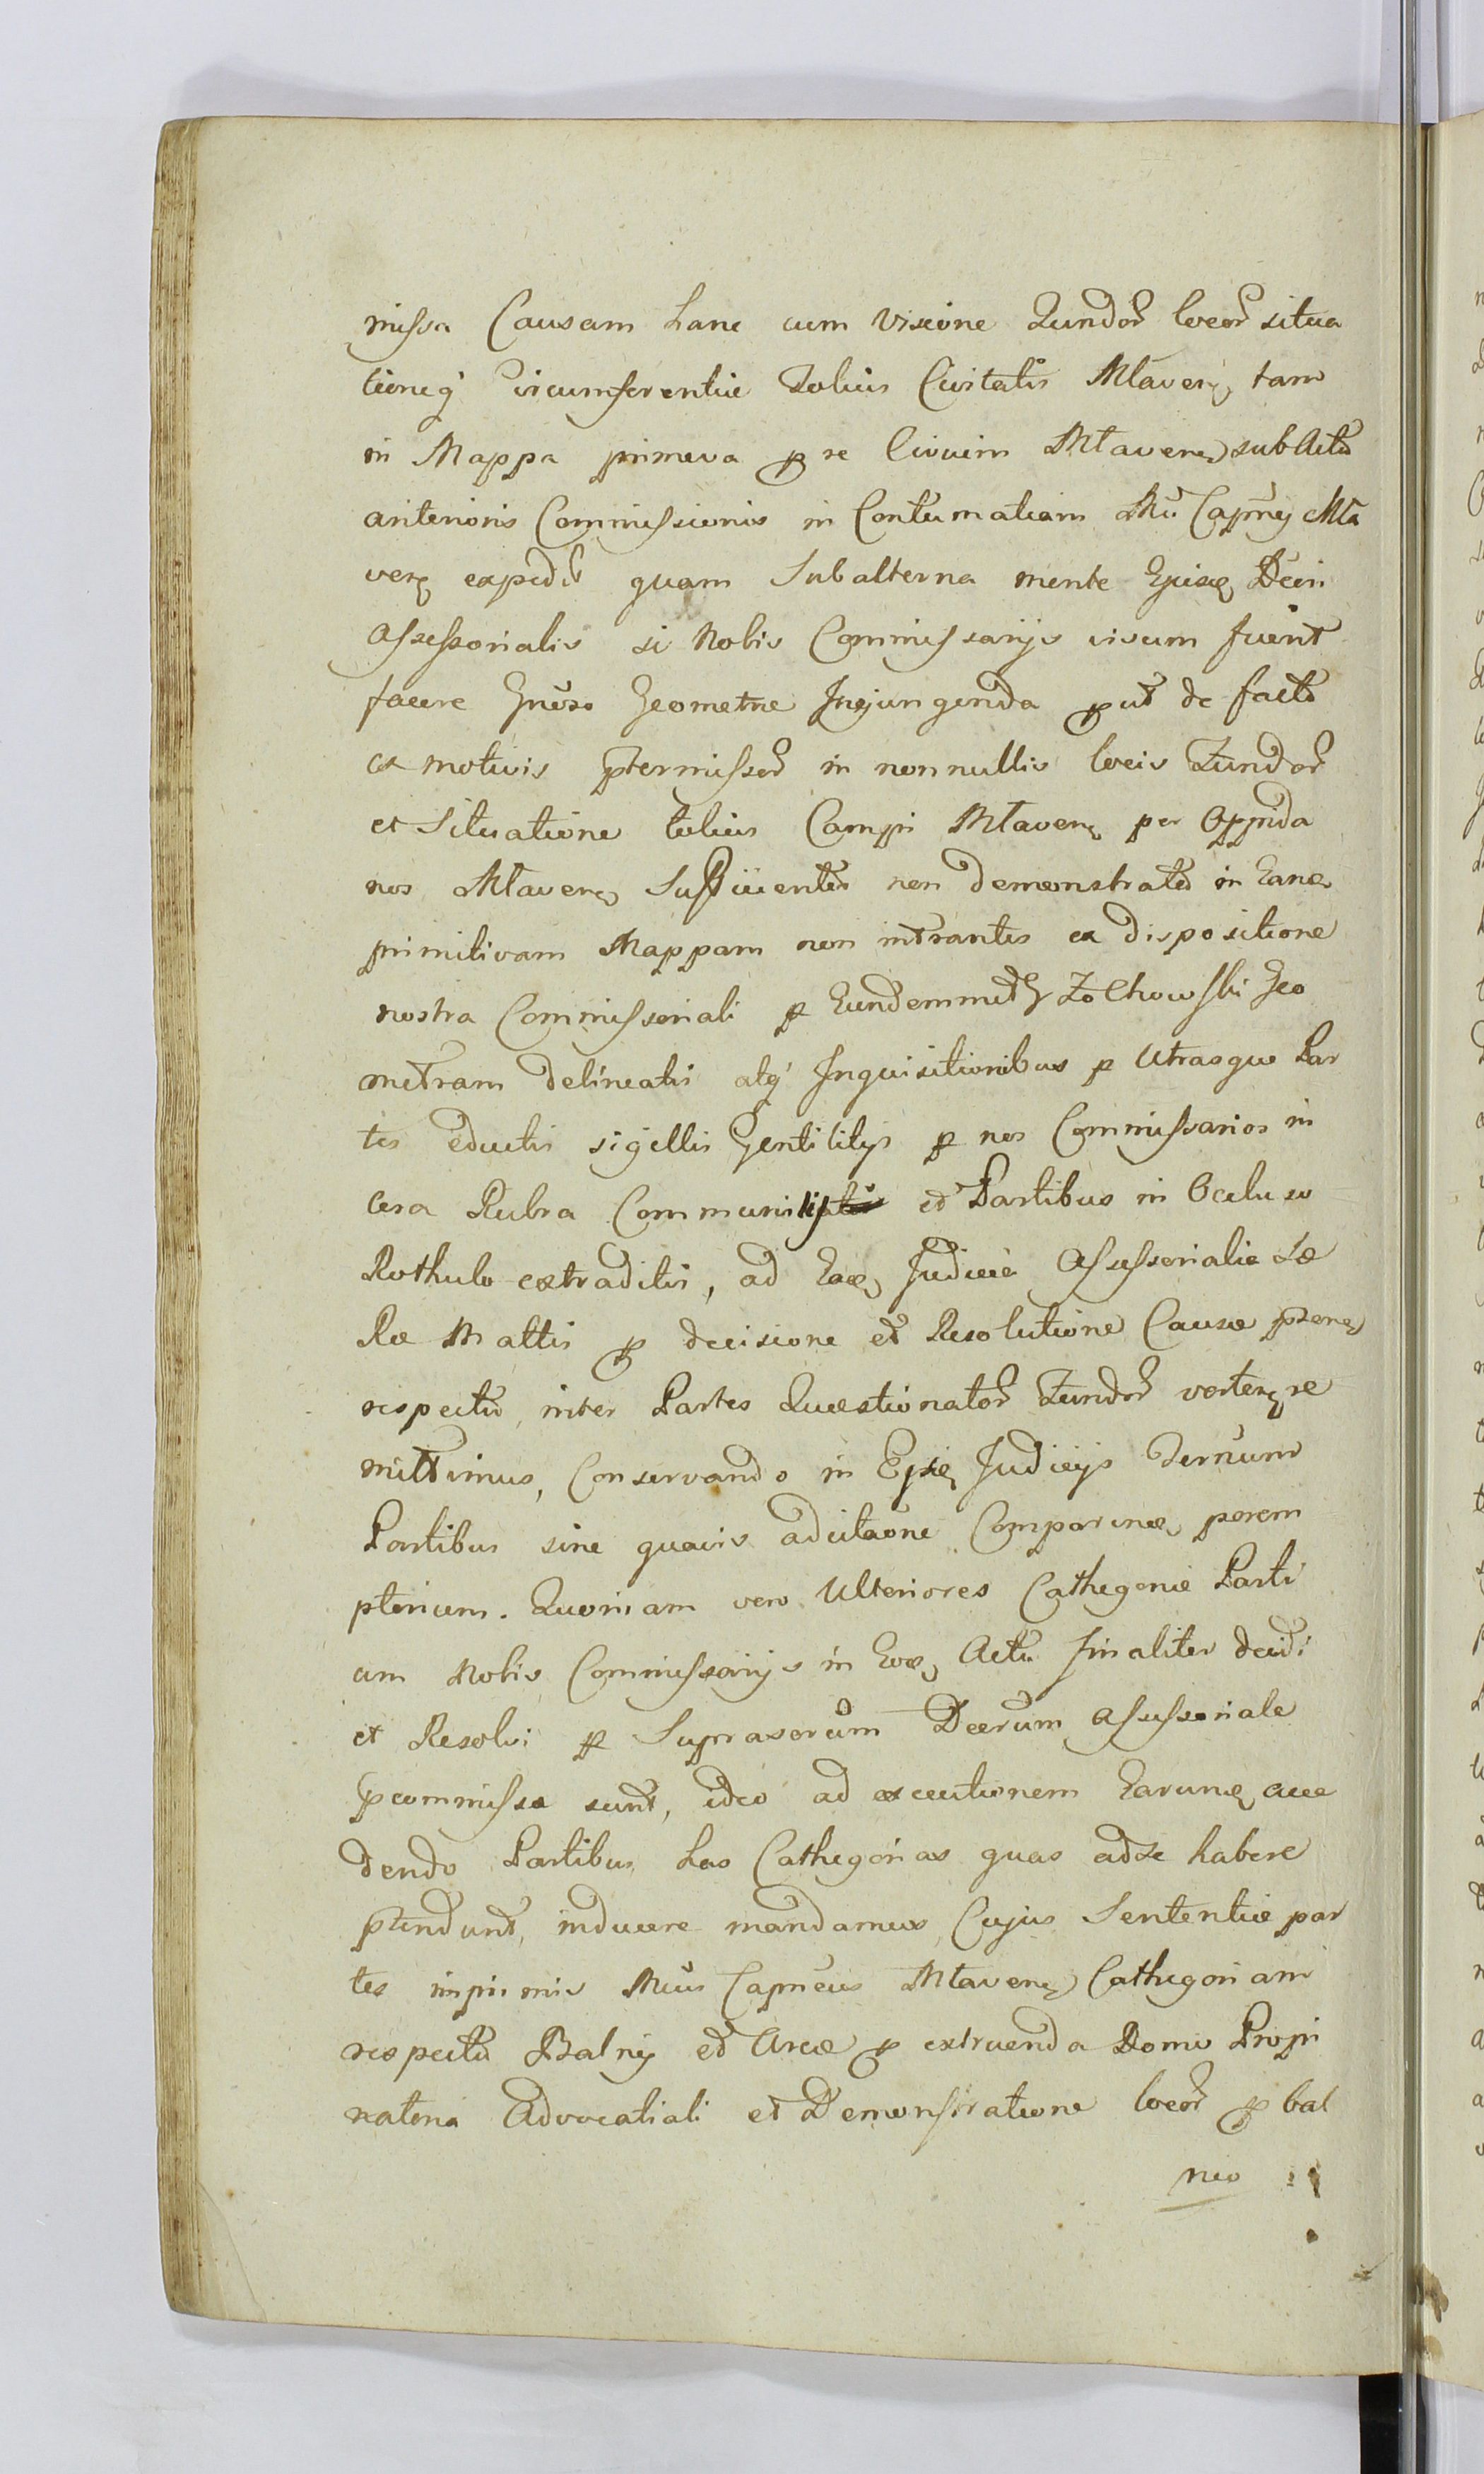 missa Causam hanc cum Visione Fundor locor situa
tioneq circumferentiæ totius Civitatis Mlaven tam
in Mappa primeva p re Civium Mlaven sub Actu
anterioris Commissionis in Contumatiam Capnej Mla
ven expedit quam Subalterna mente Ejusq
Assessorialis si Nobis Commissarijs visum fuerit
facere Gnoso Geometræ Injungenda put de facto
ex motivis ptermissor in nonnullis locis Fundor
et Situatione totius Campi Mlaven per Oppida
nos Mlaven Sufficienter non demonstrator in Eanq
primitivam Mappam non intrantes ex dispositione
nostra Commissoriali p Eundemmet G Zołchowski Geo
metram delineatis atq Inquisitionibus p Utrasque Par
tes eductis sigillis Gentilitijs p nos Commissarios in
cera Rubra Communitis et Partibus in Occluso
Rothulo extraditis, ad Eaq Judicia Assessorialia Sæ
Ræ Mattis p decisione et Resolutione Causæ psen
respectu inter Partes Quæstionator Fundor verten re
mittimus, Conservando in Ejsq Judicijs Ternum
Partibus sine quavis adcitaone Comparen perem
ptorium. Quoniam vero Ulteriores Cathegoriæ Parti
um Nobis Commissarijs in Eoq Actu finaliter decidi
et Resolvi p Suprascrum Decrum Assessoriale
pcommissæ sunt, ideo ad executionem Earunq acce
dendo Partibus has Cathegorias quas adse habere
ptendunt, inducere mandamus, Cujus Sententiæ par
tes inprimis Mcus Capneus Mlaven Cathegoriam
respectu Balnej et Areæ p extruenda Domo Propi
natoria Advocatiali et Demonstratione locor p bal
neo